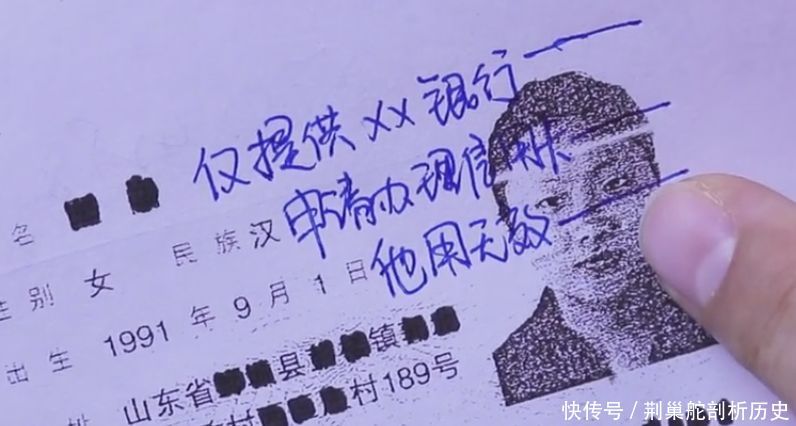 仅提供××银行
申请办理信用卡
他用无效
名
性别 女 民族 汉
出生 1991 年 9 月 1 日
山东省 县 镇
村 村189号
快传号 / 荆巢舵剖析历史